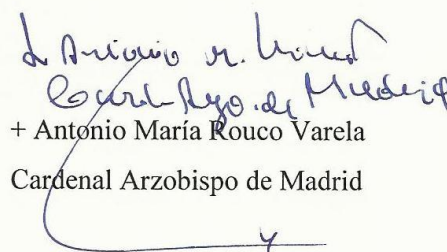 + Antonio M. Rouco
Card. Arzo. de Madrid
+ Antonio María Rouco Varela
Cardenal Arzobispo de Madrid